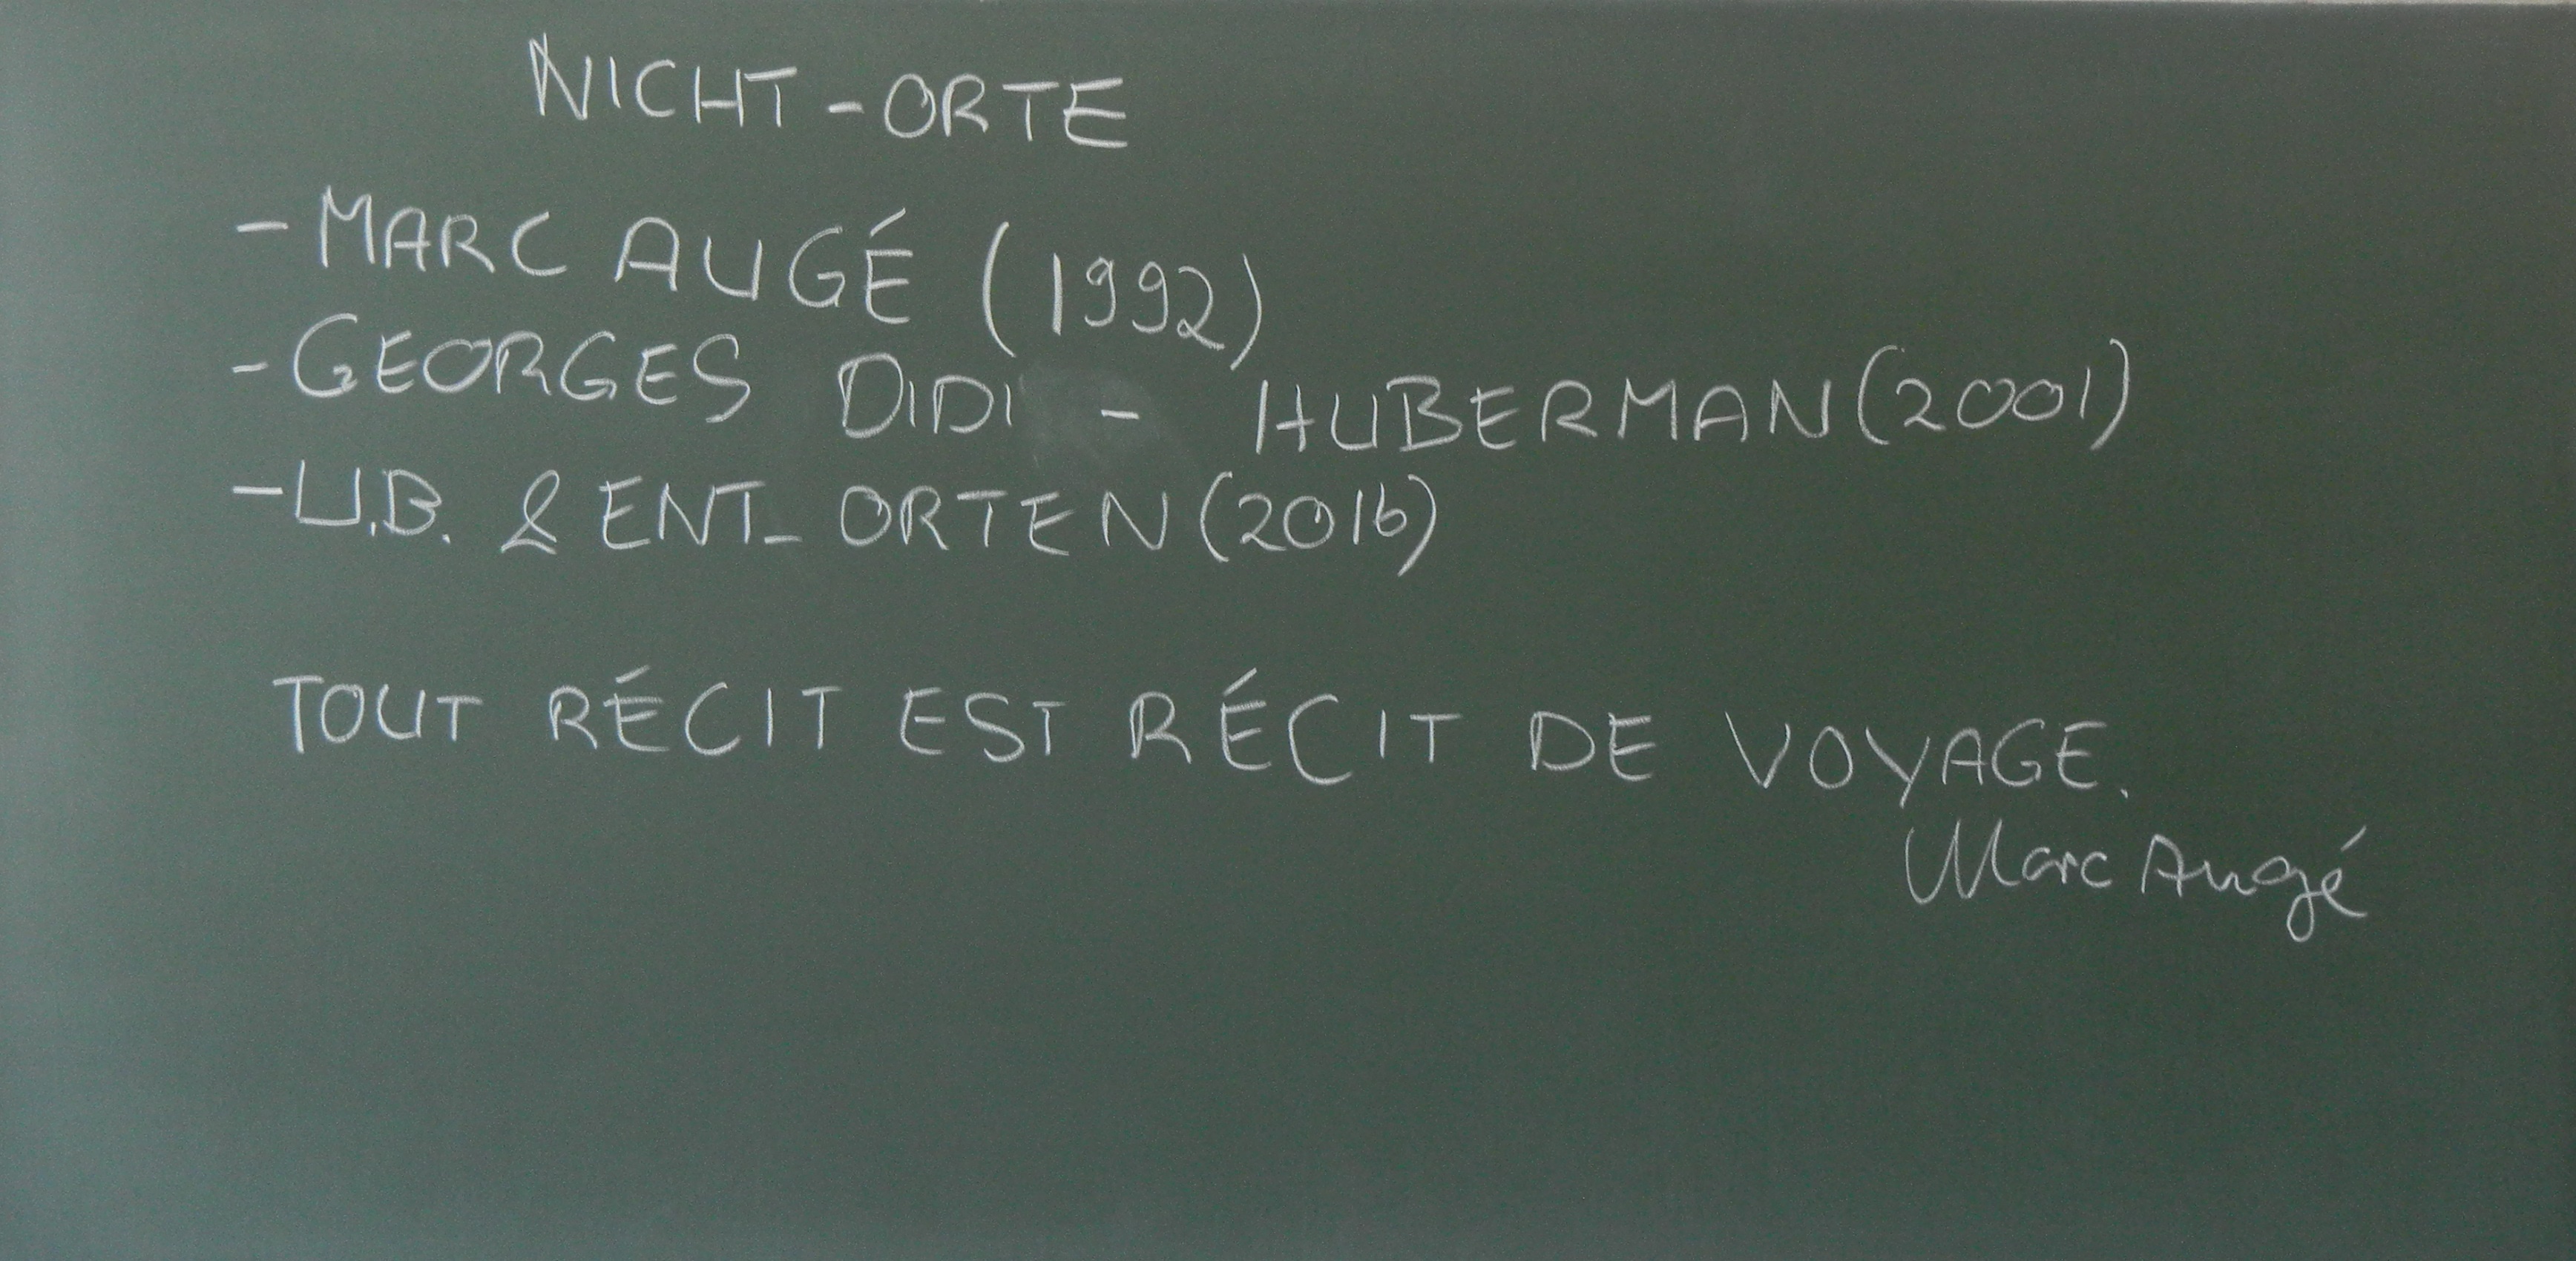 NICHT-ORTE
- MARC AUGÉ (1992)
- GEORGES DIDI - HUBERMAN (2001)
- U.B. & ENT- ORTEN (2016)
TOUT RÉCIT EST RÉCIT DE VOYAGE.
Marc Augé